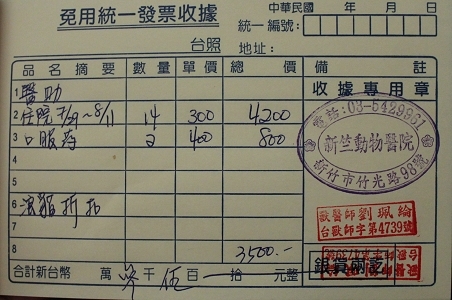 免用統一發票收據
中華民國 年 月 日
統一編號:
台照 地址:
品名摘要 數量 單價 總價 備註
1 醫助
2 住院 7/29~8/11 14 300 4200
3 口服药 2 400 800
4
5
6 浪貓折扣
7
8 3500.-
合計新台幣 萬 叁 千 伍 百 拾 元整
收據專用章
電話:03-5429961
新竺動物醫院
新竹市竹光路98號
獸醫師劉珮綸
台獸師字第4739號
銀貨兩訖